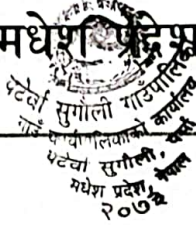 मधेश प्रदेश
पटेर्वा सुगौली गाउँपालिका
गाउँ कार्यपालिकाको कार्यालय
पटेर्वा सुगौली, पर्सा
मधेश प्रदेश, नेपाल
२०७४